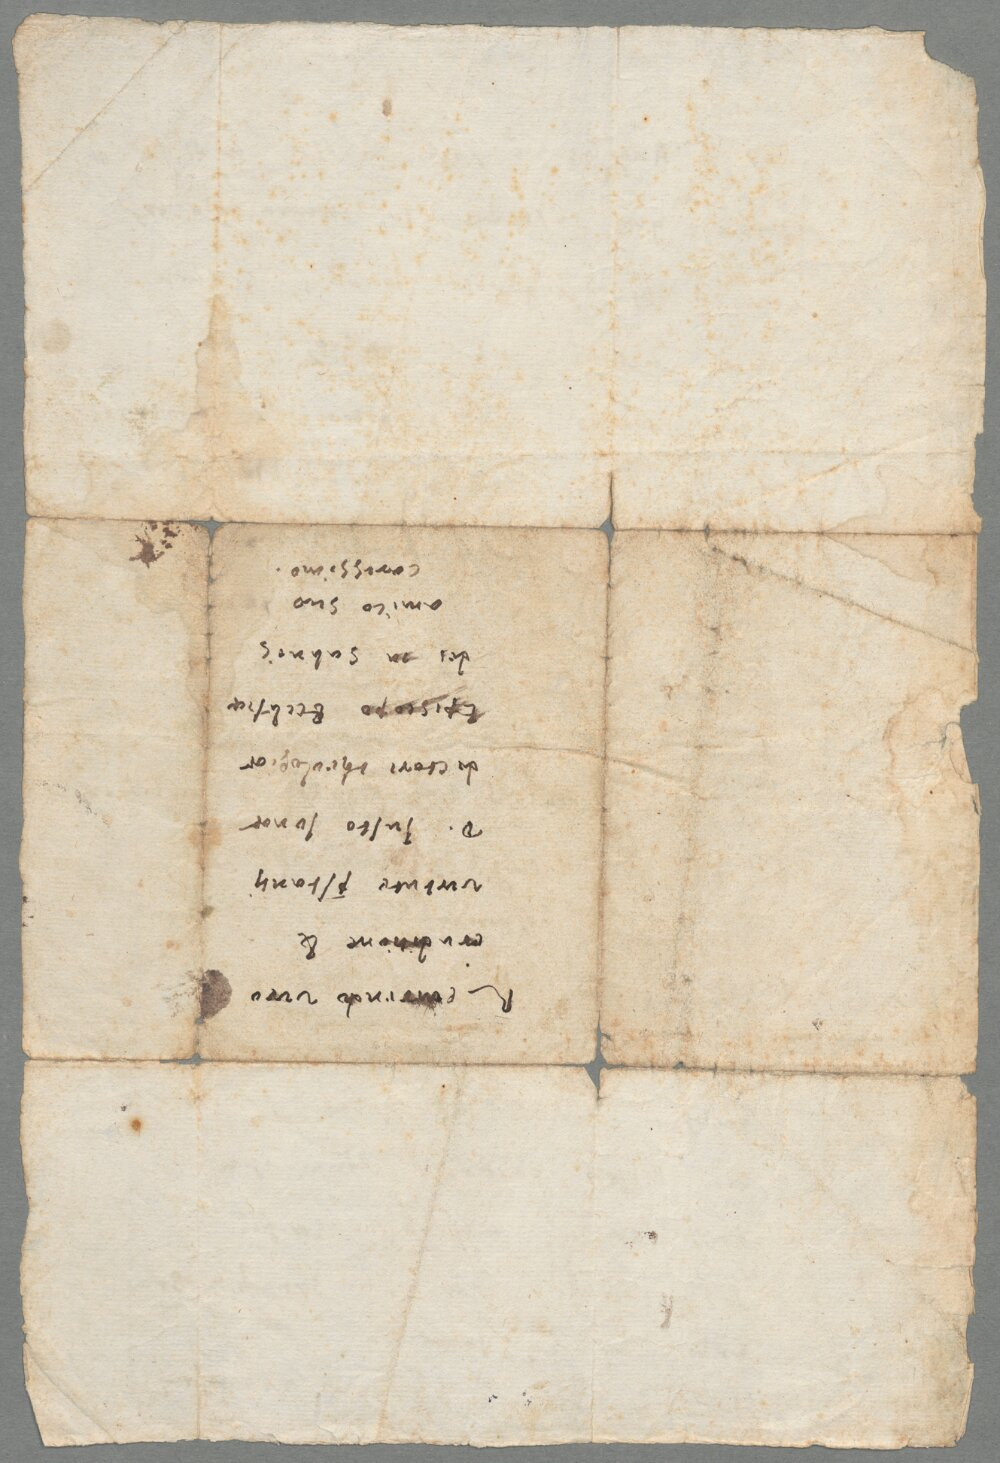 Reverendo viro
eruditione &
virtute p̄stanti
D. Justo Jonae
doctori theologiae
Episcopo Ecclesiae
dei in Salueis
amico suo
carissimo.